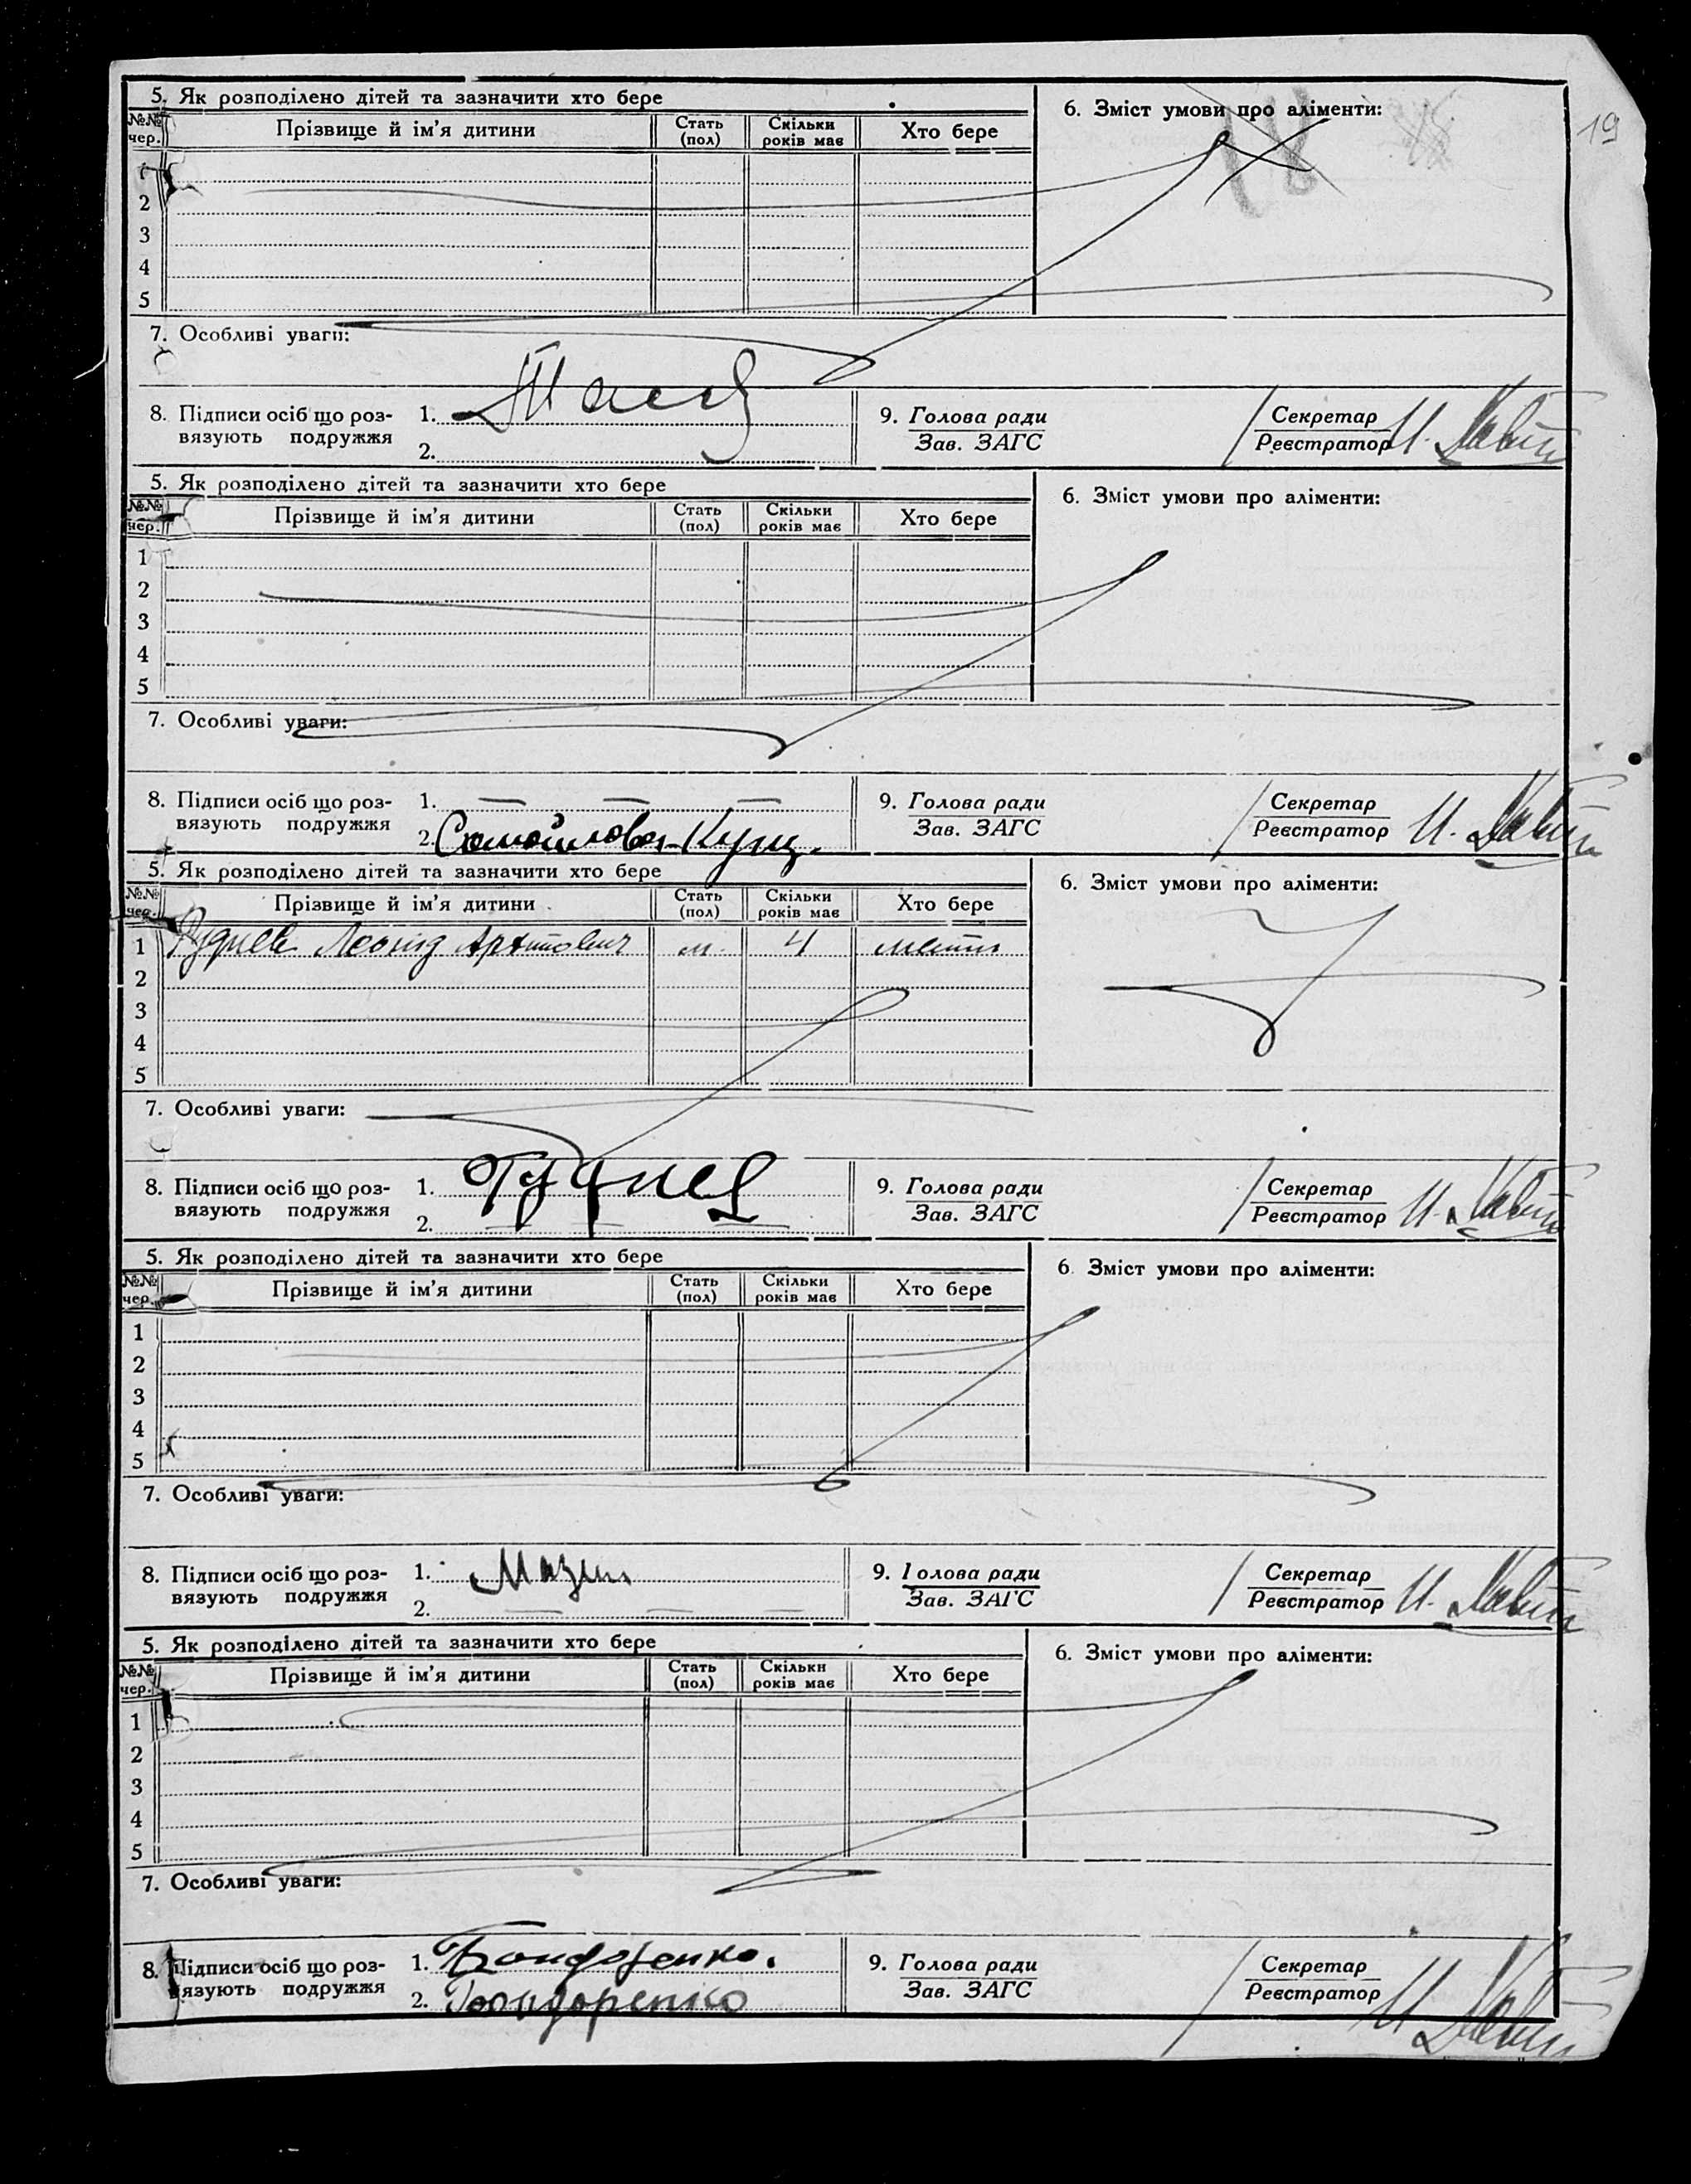 19
5. Як розподілено дітей та зазначити хто бере
6. Зміст умови про аліменти:
№№ чер. Прізвище й ім'я дитини Стать (пол) Скільки років має Хто бере
1
2
3
4
5
7. Особливі уваги:
8. Підписи осіб що роз-
вязують подружжя
1.
2.
9. Голова ради
Зав. ЗАГС
Секретар
Реєстратор
5. Як розподілено дітей та зазначити хто бере
6. Зміст умови про аліменти:
№№ чер. Прізвище й ім'я дитини Стать (пол) Скільки років має Хто бере
1
2
3
4
5
7. Особливі уваги:
8. Підписи осіб що роз-
вязують подружжя
1. — — —
2. Самойлова-Кущ.
9. Голова ради
Зав. ЗАГС
Секретар
Реєстратор
5. Як розподілено дітей та зазначити хто бере
6. Зміст умови про аліменти:
№№ чер. Прізвище й ім'я дитини Стать (пол) Скільки років має Хто бере
1 Руднєв Леонід Архипович м. 4 мати
2
3
4
5
7. Особливі уваги:
8. Підписи осіб що роз-
вязують подружжя
1. Руднев
2. — — —
9. Голова ради
Зав. ЗАГС
Секретар
Реєстратор
5. Як розподілено дітей та зазначити хто бере
6. Зміст умови про аліменти:
№№ чер. Прізвище й ім'я дитини Стать (пол) Скільки років має Хто бере
1
2
3
4
5
7. Особливі уваги:
8. Підписи осіб що роз-
вязують подружжя
1. Мазин
2. — — —
9. Голова ради
Зав. ЗАГС
Секретар
Реєстратор
5. Як розподілено дітей та зазначити хто бере
6. Зміст умови про аліменти:
№№ чер. Прізвище й ім'я дитини Стать (пол) Скільки років має Хто бере
1
2
3
4
5
7. Особливі уваги:
8. Підписи осіб що роз-
вязують подружжя
1. Бондаренко.
2. Бондаренко
9. Голова ради
Зав. ЗАГС
Секретар
Реєстратор